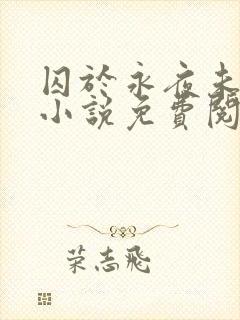 囚於永夜未
小說免費閱
荣志飛